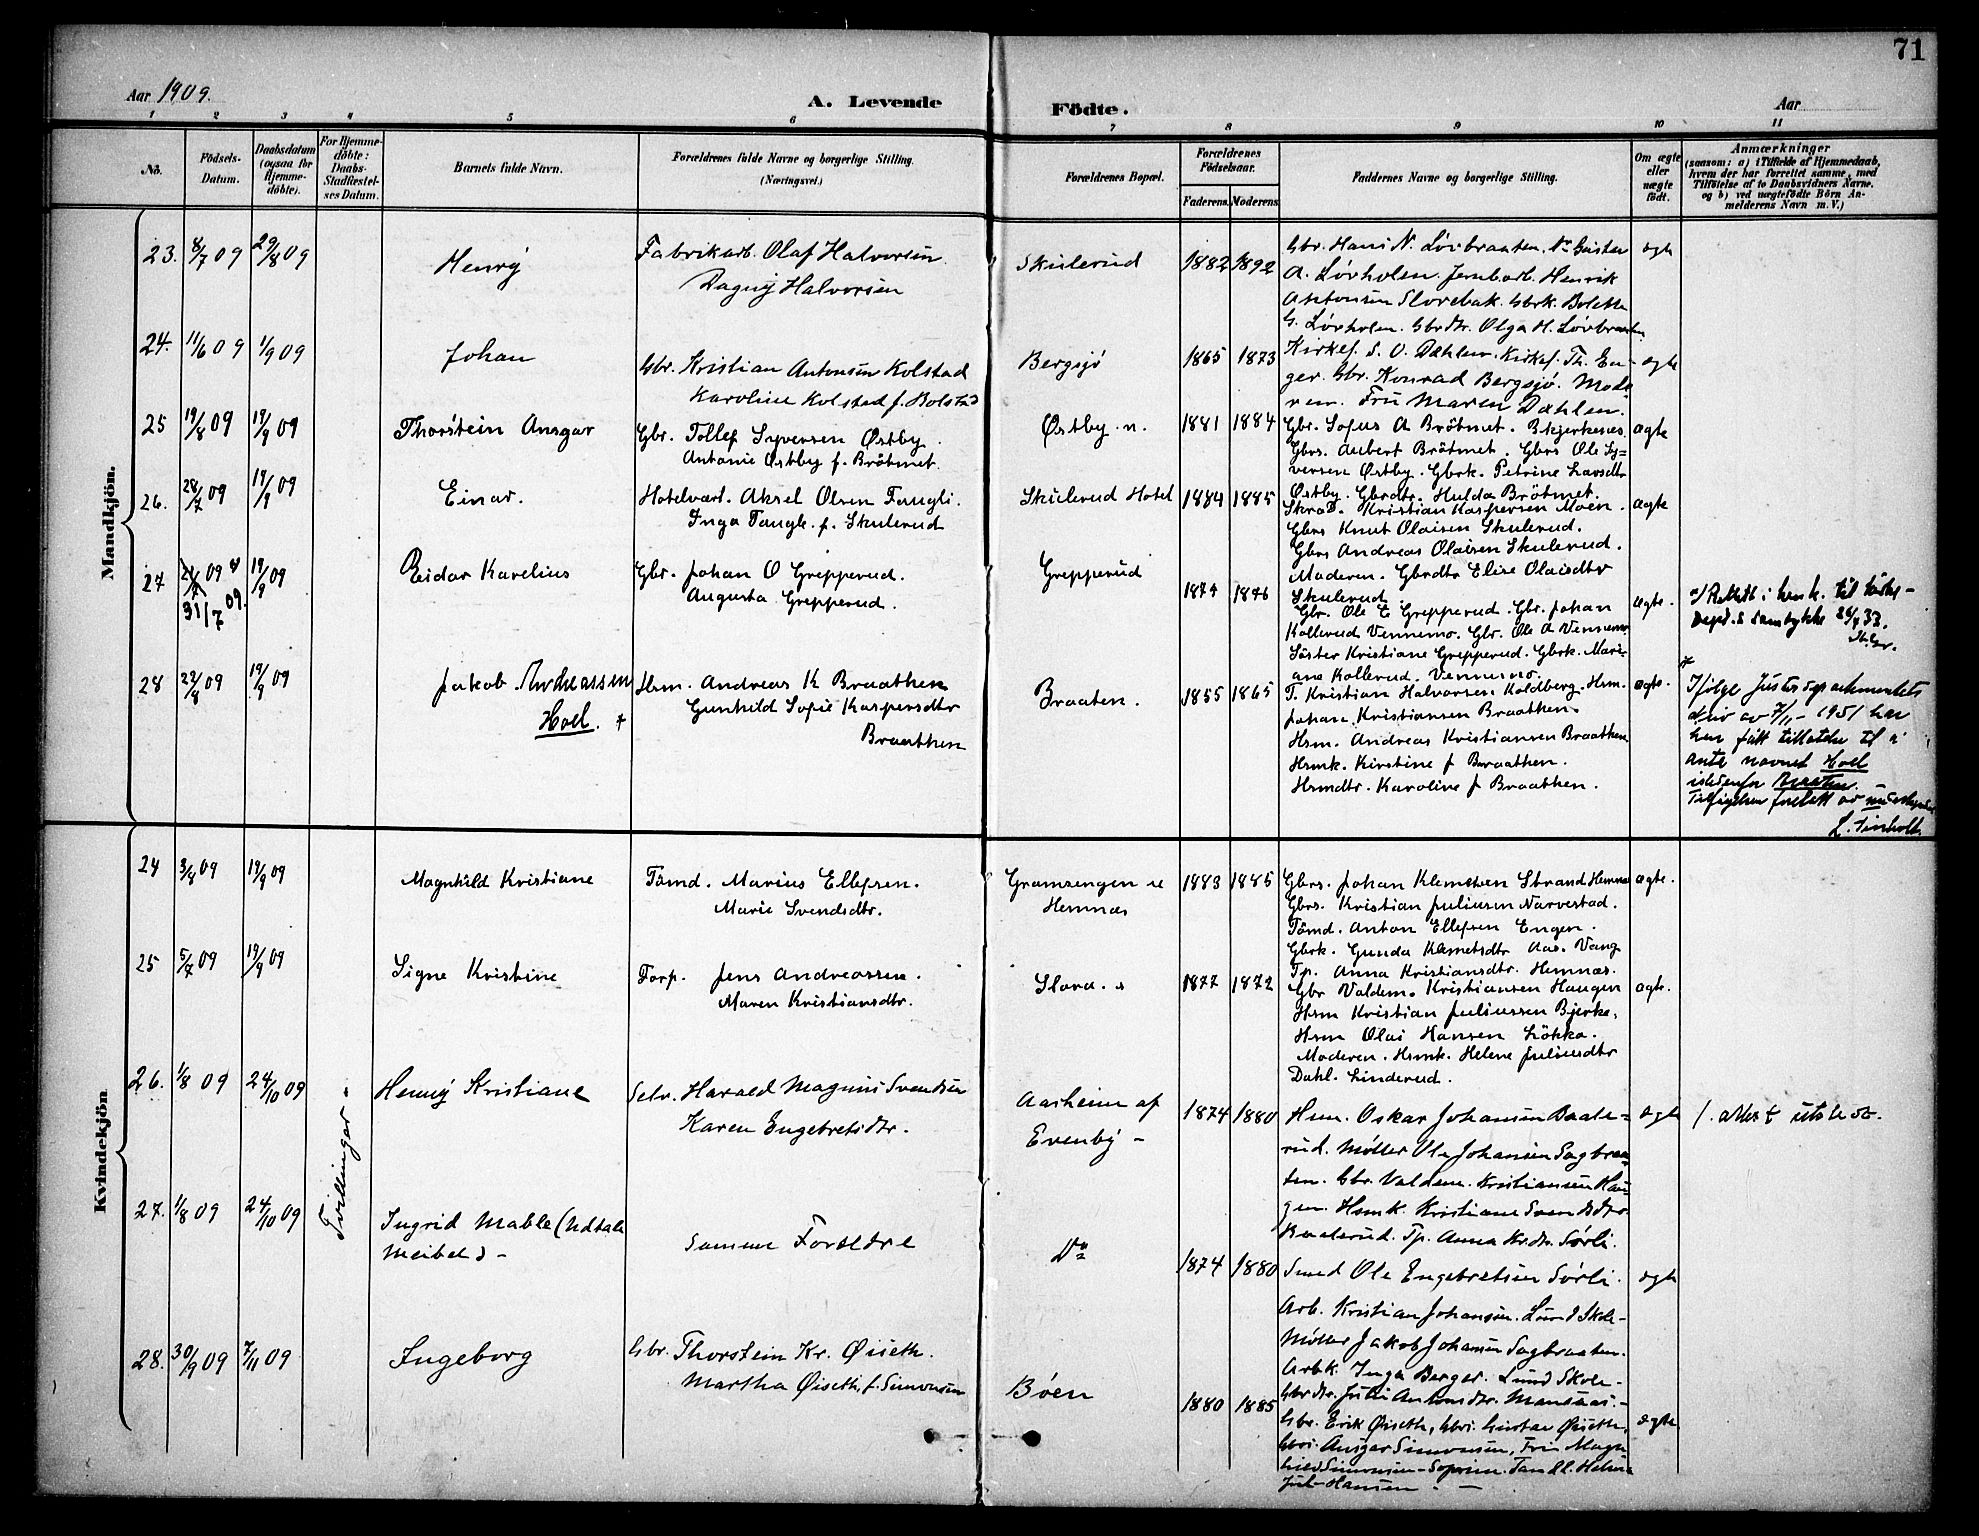 71
Aar 1909.
A. Levende
Födte.
Aar
1 2 3 4 5 6 7 8 9 10 11
No.
Födsels-
Datum.
Daabsdatum
(ogsaa for
Hjemme-
döbte).
For Hjemme-
döbte:
Daabs-
Stadfæstel-
ses Datum.
Barnets fulde Navn.
Forældrenes fulde Navne og borgerlige Stilling.
(Næringsvei.)
Forældrenes Bopæl.
Forældrenes
Födselsaar.
Faderens. Moderens.
Faddernes Navne og borgerlige Stilling.
Om ægte
eller
uægte
födt.
Anmærkninger
(saasom: a) i Tilfælde af Hjemmedaab,
hvem der har forrettet samme, med
Tilföielse af to Daabsvidners Navne.
og b) ved uægtefödte Börn An-
melderens Navn m. V.)
Mandkjön.
23. 8/7 09 29/8 09
Henry
Fabrikarb. Olaf Halvorsen
Dagny Halvorsen
Skulerud
1882 1892
Gbr. Hans N. Lövbraaten.
A. Løvholen. Jernbarb. Henrik
Antonsen Slorebak. Gbrk. Bolette
G. Løvholen. Gbrdtr. Olga H. Løvbraaten
ægte
24. 11/6 09 1/9 09
Johan
Gbr. Kristian Antonsen Kolstad
Karoline Kolstad f. Bolstad
Bergsjø
1865 1873
Kirkes. S. O. Dæhlen. Kirkes. Th. En-
ger. Gbr. Konrad Bergsjø. Mode
ren. Fru Maren Dæhlen.
ægte
25 19/8 09 19/9 09
Thorstein Ansgar
Gbr. Tollef Syversen Østby.
Antonie Østby f. Bråtmet.
Østby n.
1881 1884
Gbr. Sofus A Bråtmet. Bkjerkenes
Gbrs. Aubert Bråtmet. Gbrs Ole Sy=
versen Østby. Gbrk. Petrine Larsdtr
Østby. Gbrdtr. Hulda Bråtmet.
ægte
26. 28/7 09 19/9 09
Einar.
Hotelvært. Aksel Olsen Tangli.
Inga Tangli. f. Skulerud
Skulerud Hotel
1884 1885
Skræd. Kristian Kaspersen Moen.
Gbrs Knut Olaisen Skulerud.
Gbrs Andreas Olaisen Skulerud.
Moderen. Gbrdtr Elise Olaisdtr
Skulerud
ægte
27 21/7 09 19/9 09
31/7 09.
Reidar Karelius
Gbr. Johan O Grepperud.
Augusta Grepperud.
Grepperud
1876
Gbr. Ole E Grepperud. Gbr. Johan
Kollerud Vennemo. Gbr. Ole A Vennemo
Söster Kristiane Grepperud. Gbrk. Mari-
ane Kollerud. Vennemo.
ægte.
Rettet i henh. til Kirke-
dept.s samtykke 33.
28 19/9 09
Jakob Andreassen
Hoel.
Hsm. Andreas K Braathen
Gunhild Sofie Kaspersdtr
Braathen
Braaten.
1855 1865
T. Kristian Halvorsen Koldberg. Hsm.
Johan Kristiansen Braathen.
Hsm. Andreas Kristiansen Braathen
Hsmk. Kirstine f Braathen.
Hsmdtr. Karoline f Braathen.
ægte.
Ifølge Justisdepartementets
skriv av 7/11-1951 har
han fått tillatelse til å
anta navnet Hoel
istedenfor Braathen.
Tilføyelsen foretatt av
Kvindekjön
24 3/8 09 19/9 09
Magnhild Kristiane
Tömd. Marius Ellefsen.
Marie Svendsdtr.
Hemnæs
1883 1885
Gbrs. Johan Klemetsen Strand Hemnæs
Gbrs. Kristian Juliusen Narvestad.
Tömd. Anton Ellefsen Engen.
Gbrk. Gunda Klemetsdtr Aas. Vang
Tp. Anna Kristiansdtr. Hemnæs.
ægte.
25 5/7 09 19/9 09
Signe Kristine
Forp. Jens Andreassen.
Maren Kristiansdtr.
Slora. s
1877 1872
Gbr Valdem. Kristiansen Haugen
Hsm Kristian Juliussen Bjerke.
Hsm Olai Hansen Lökka.
Moderen. Hsmk. Helene Juliusdtr
Dahl. Linderud.
ægte.
26. 1/8 09 24/10 09
Tvillinger
Henny Kristiane
Selv. Harald Magnus Svendsen
Karen Engebretsdtr.
Aasheim af
Evenby -
1874 1880
Hsm. Oskar Johansen Baale=
rud. Møller Ole Johansen Sagbraa=
ten. Gbr. Valdem. Kristiansen Hau-
gen. Hsmk. Kristiane Svendsdtr.
Baalerud. Tp. Anna Kr.dtr. Sørli.
ægte
1. attest utstedt.
27. 1/8 09 24/10 09
Ingrid Mable (udtale
Meibel) -
Samme Forældre
Do
1874 1880
Smed Ole Engebretsen Sørli.
Arb. Kristian Johansen. Lund Skole-
Møller Jakob Johansen Sagbraaten.
Arbk. Inga Berger. Lund Skole-
Gbrdtr. Julie Antonsdtr. Mansaas.-
ægte
28. 30/9 09 7/11 09
Ingeborg
Gbr. Thorstein Kr. Øiseth.
Martha Øiseth, f. Simonsen
Bøen
1880 1885
Gbr. Erik Øiseth, Gbrs. Gustav Øiseth,
Gbrs. Ansgar Simonsen, Frk Magn
hild Simonsen -
Hansen.
ægte